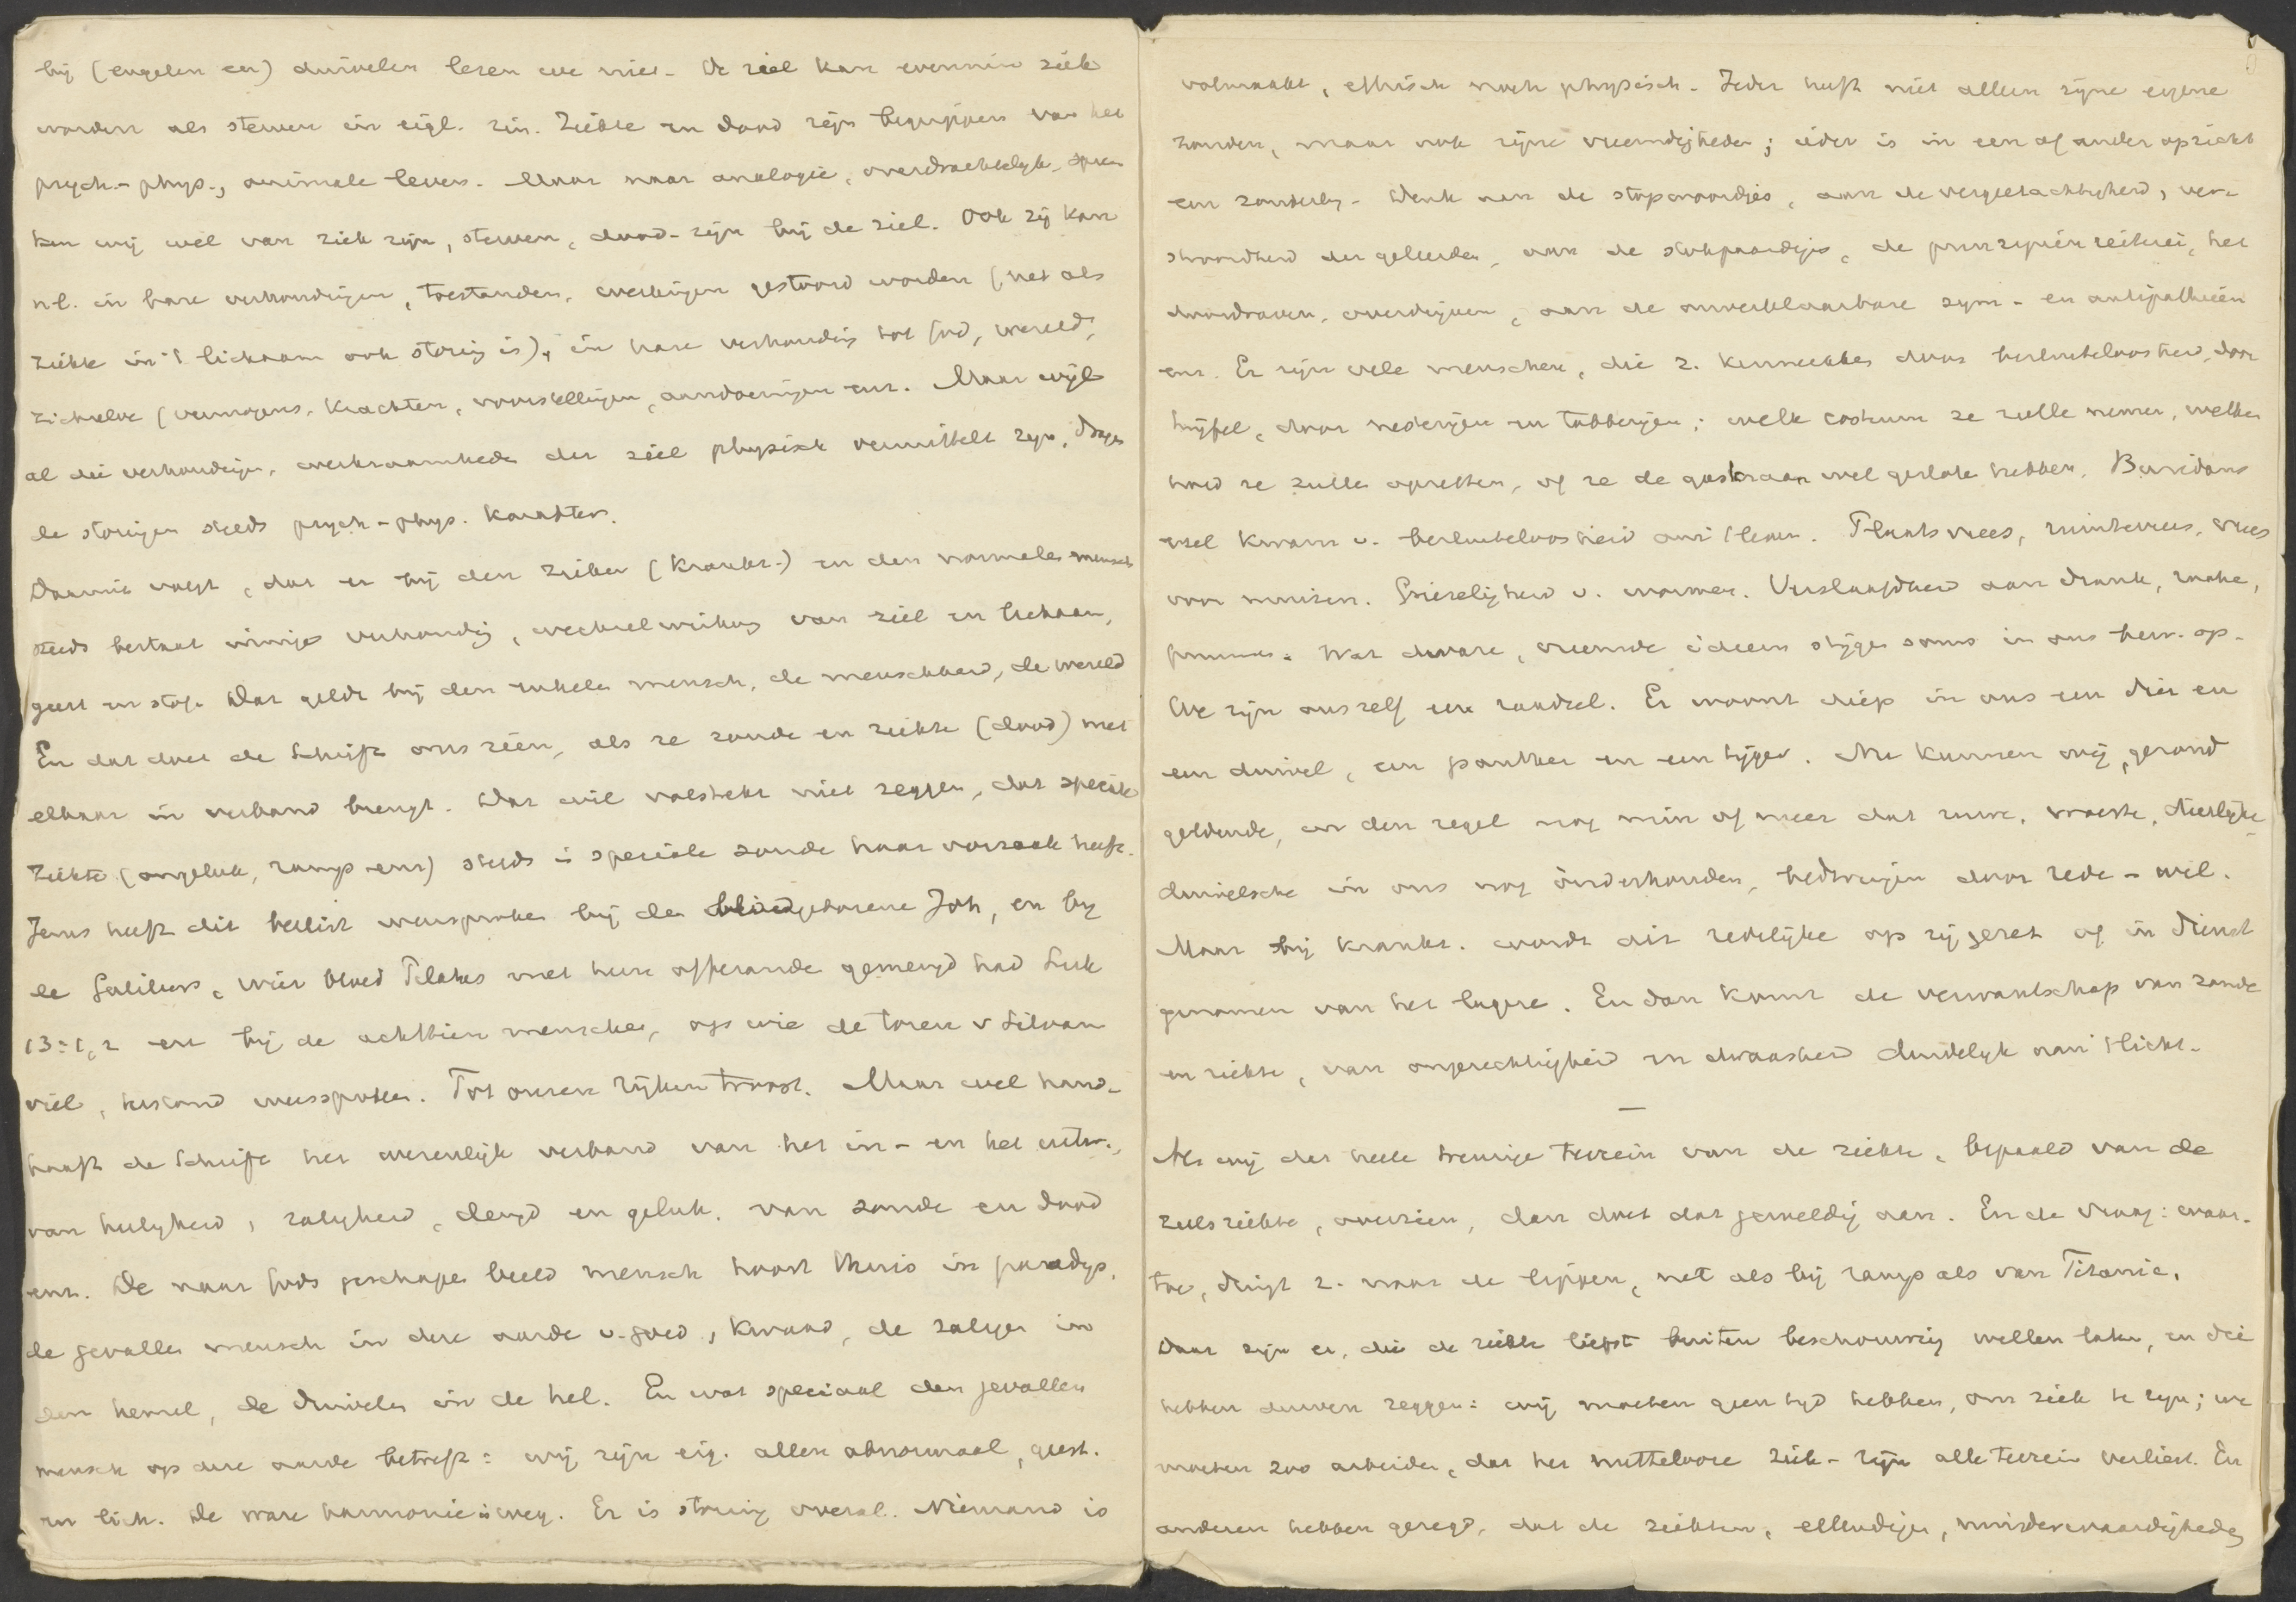 bij (engelen en) duivelen lezen we niet. De ziel kan evenmin ziek
worden als sterven in eigl. zin. Ziekte en dood zijn begrippen van het
psych.-phys., animale leven. Maar naar analogie, overdrachtelijk, spre-
ken wij wel van ziek zijn, sterven, dood-zijn bij de ziel. Ook zij kan
nl. in hare verhoudingen, toestanden, werkingen gestoord worden (net als
ziekte in 't lichaam ook storing is), in hare verhouding tot God, wereld,
zichzelve (vermogens, krachten, voorstellingen, aandoeningen enz. Maar wijl
al die verhoudingen, werkzaamheden der ziel physisch vermittelt zijn, dragen
de storingen steeds psych-phys. karakter.
Daaruit volgt, dat er bij den zieken (krankz.) en den normalen mensch
steeds bestaat innige verhouding, wechselwirkung van ziel en lichaam,
geest en stof. Dat geldt bij den enkelen mensch, de menschheid, de wereld
En dat doet de Schrift ons zien, als ze zonde en ziekte (dood) met
elkaar in verband brengt. Dat wil volstrekt niet zeggen, dat speciale
ziekte (ongeluk, ramp enz) steeds in speciale zonde haar oorzaak heeft.
Jezus heeft dit beslist weersproken bij den blindgeborene Joh, en bij
de Galileërs, wier bloed Pilatus met hun offerande gemengd had Luk
13:1,2 en bij de achttien menschen, op wie de toren v Siloam
viel, weersproken. Tot onzen rijken troost. Maar wel hand-
haaft de Schrift het wezenlijk verband van het in- en het uitw.,
van heiligheid, zaligheid, deugd en geluk, van zonde en dood
enz. De naar Gods geschapen beeld mensch hoort thuis in paradijs,
de gevallen mensch in deze aarde v. goed, kwaad, de zaligen in
den hemel, de duivelen in de hel. En wat speciaal den gevallen
mensch op deze aarde betreft: wij zijn eig. allen abnormaal, geest.
en lich. De ware harmonie is weg. Er is storing overal. Niemand is
volmaakt, ethisch noch physisch. Ieder heeft niet alleen zijne eigene
zonden, maar ook zijne vreemdigheden; ieder is in een of ander opzicht
een zonderling. Denk aan de stopwoordjes, aan de vergeetachtigheid, ver-
strooidheid der geleerden, aan de stokpaardjes, de prinzipiënreiterei, het
doordraven, overdrijven, aan de onverklaarbare sym- en antipathieën
enz. Er zijn vele menschen, die z. kenmerken door besluiteloosheid, door
twijfel, door weifelingen en tobberijen; welk costuum ze zullen nemen, welken
hoed ze zullen opzetten, of ze de gaskraan wel gesloten hebben. Buridans
ezel kwam v. besluiteloosheid om 't leven. Plaatsvrees, ruimtevrees, vrees
voor muizen. Griezeligheid v. wormen. Verslaafdheid aan drank, tabak,
Wat dwaze, vreemde ideeën stijgen soms in ons bew. op.
We zijn ons zelf een raadsel. Er woont diep in ons een dier en
een duivel, een panther en een tijger. Nu kunnen wij, gezond
geldende, in den regel nog min of meer dat ruwe, woeste, dierlijke,
duivelsche in ons nog onderhouden, bedwingen door rede - wil.
Maar bij krankz. wordt dit redelijke op zij gezet of in dienst
genomen van het lagere. En dan komt de verwantschap van zonde
en ziekte, van ongerechtigheid en dwaasheid duidelijk aan 't licht.
—
Als wij dat heele treurige terrein van de ziekte, bepaald van de
zielsziekte, overzien, dan doet dat geweldig aan. En de vraag: waar-
toe, dringt z. naar de lippen, net als bij ramp als van Titanic.
Daar zijn er, die de ziekte liefst buiten beschouwing willen laten, en die
hebben durven zeggen: wij moeten geen tijd hebben, om ziek te zijn; we
moeten zoo arbeiden, dat het nuttelooze ziek-zijn alle terrein verliest. En
anderen hebben gezegd, dat de ziekten, ellendigen, minderwaardigheden